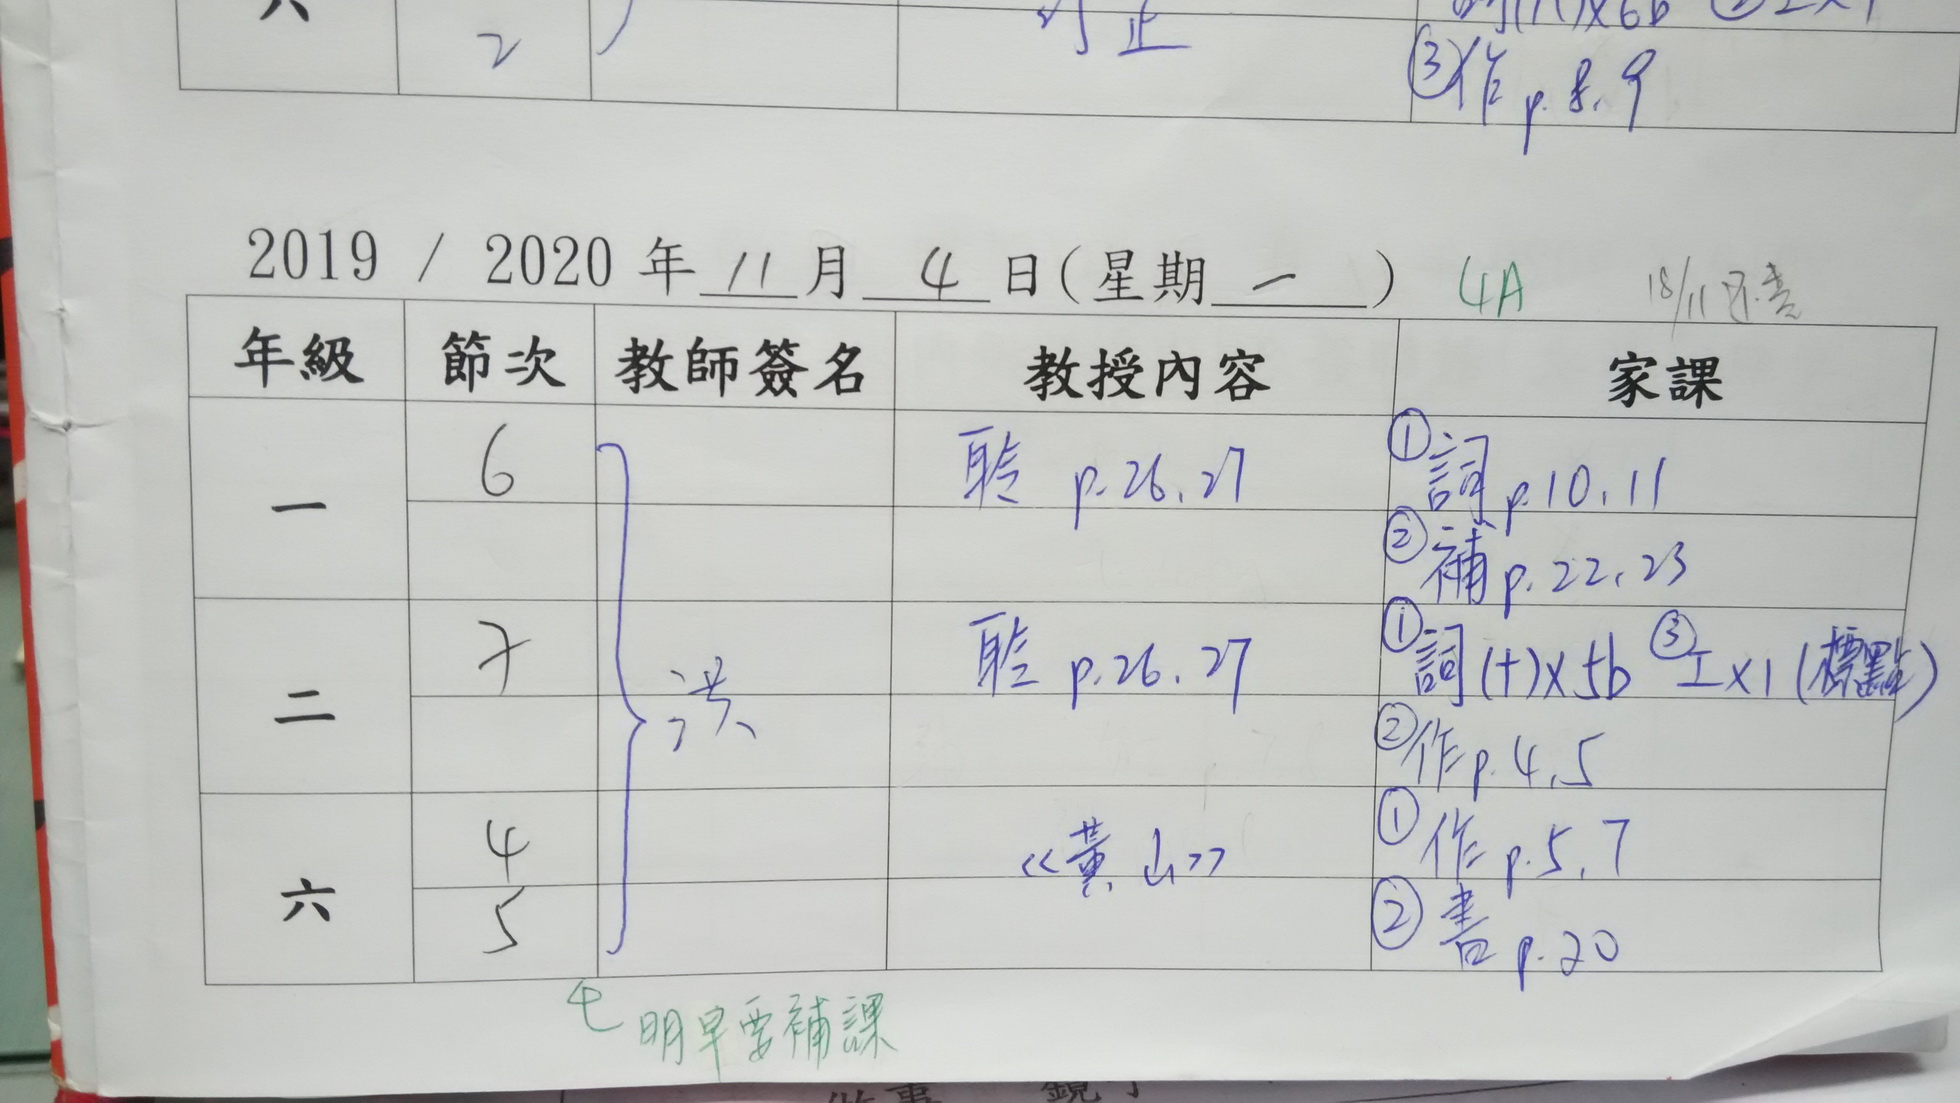 2 訂正
③作 p.8.9
2019 / 2020 年 11 月 4 日(星期 一 ) 4A 18/11
年級 節次 教師簽名 教授內容 家課
一 6 聆 p.26.27 ①詞 p.10.11
②補 p.22.23
二 7 洪 聆 p.26.27 ①詞(十)x5b ③工x1(標點)
②作 p.4.5
六 4 《黃山》 ①作 p.5.7
5 ②書 p.20
明早要補課